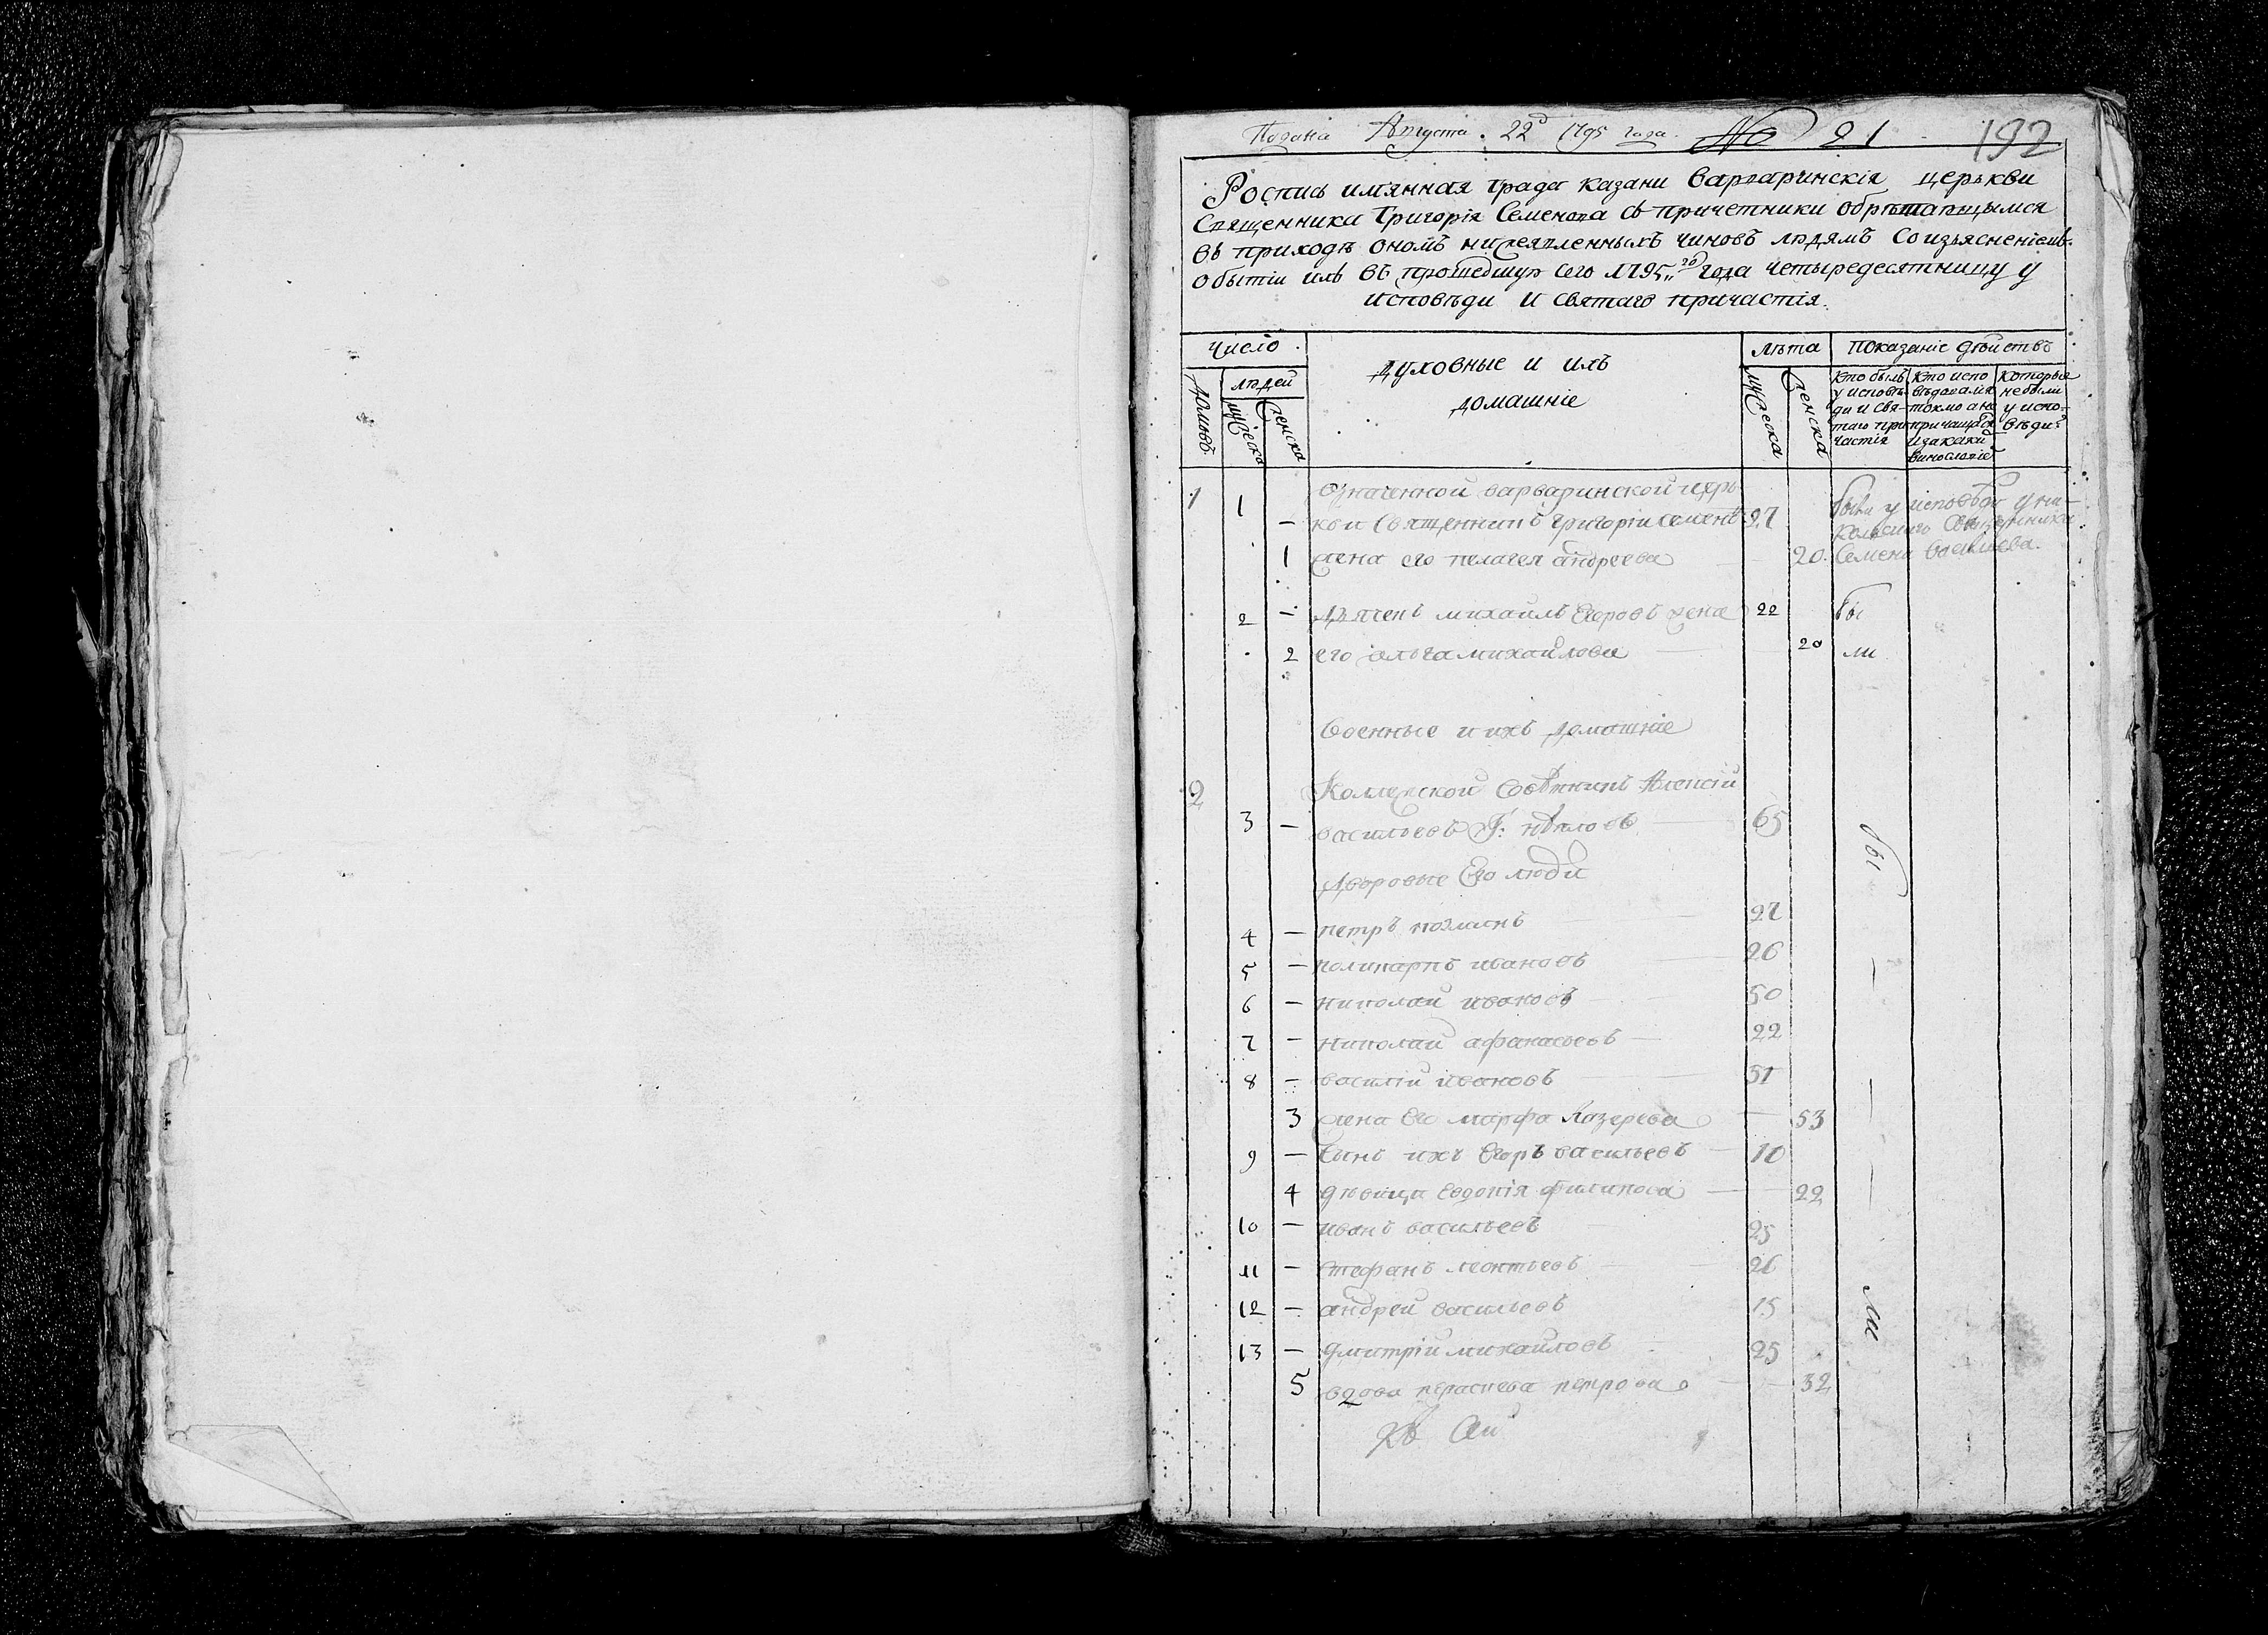 Подана Августа 22д 1795 года. No 21 192
Роспись имянная града казани варваринскія церькви
Священника Григорія Семенова съ причетники обрѣтающымся
въ приходѣ ономъ нижеявленныхъ чиновъ людямъ со изъясненіемъ
обытіи ихъ въ прошедшую сего 1795го года четыредесятницу у
исповѣди и святаго причастія.
число
Домовъ
людей
мужеска
женска
духовные и ихъ
домашніе
лѣта
мужеска
женска
показаніе дѣйствъ
кто былъ у исповѣди и святаго причастія
кто исповѣдалися токмо а не причащался и за какимъ винословіем
которые не были у исповѣди
1 Означенной варваринской церь
1 — кви Священникъ григоріи семеновъ 27 были у исповѣди у ни-
кольскаго Священника
1 жена его пелагея андреева 20. Семена васильева.
2 — Дьячекъ михаилъ Егоровъ жена 22 бы
2 его ольга михаилова 20 ли
военные и ихъ домашніе
2 Коллежской Совѣтникъ Алексій
3 — васильевъ Г: нѣиловъ 65
Дворовые Его люди
бы
4 — петръ 27
5 — поликарпъ ивановъ 26
6 — николаи ивановъ 50
7 — николаи афанасьевъ 22
8 — василіи ивановъ 51
3 жена Его марфа Лазерева 53
9 — Сынъ ихъ Егоръ васильевъ 10
4 дѣвица евдокія филипова 22
10 — иванъ васильевъ 25
11 — стефанъ леонтьевъ 26
12 — андреи васильевъ 15 ли
13 — дмитріи михаиловъ 25
5 вдова параскева петрова 32